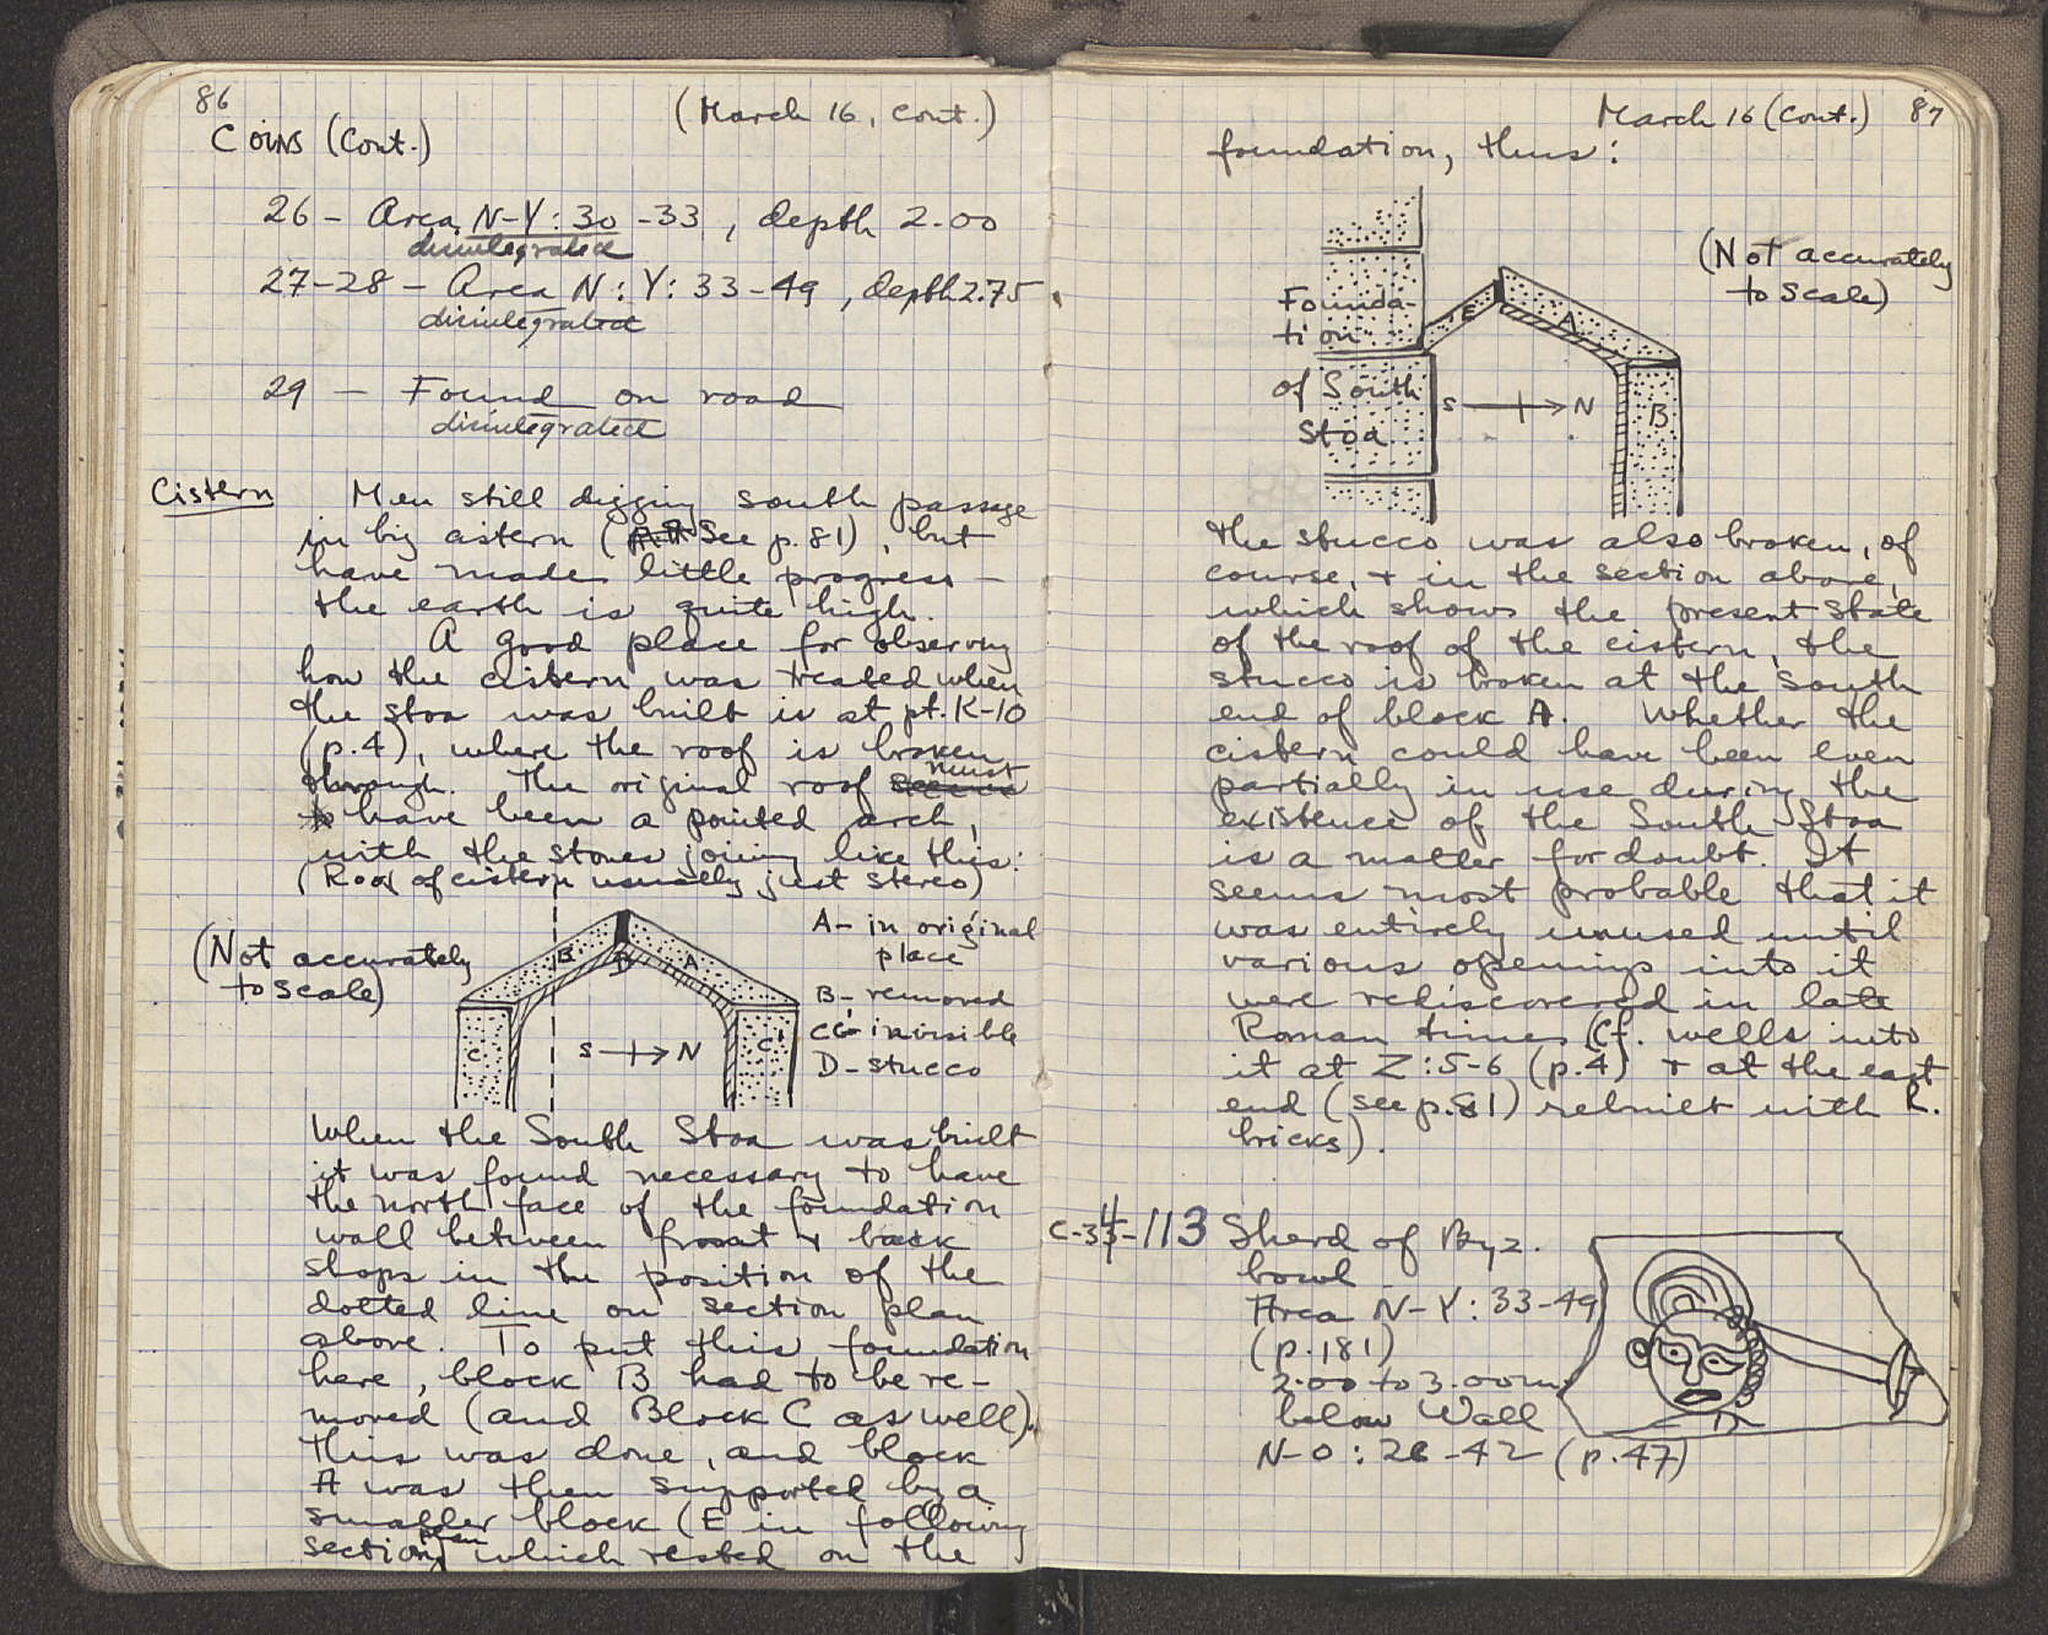 86
(March 16, cont.)
Coins (Cont.)
26 - Area N-Y: 30-33, depth 2.00
disintegrated
27-28 - Area N:Y: 33-49, depth 2.75
disintegrated
29 - Found on road
disintegrated
Cistern
Men still digging south passage
in big cistern (See p. 81), but
have made little progress -
the earth is quite high.
A good place for observing
how the cistern was treated when
the stoa was built is at pt. K-10
(p.4), where the roof is broken
through. The original roof must
have been a pointed arch,
with the stones joining like this:
(Roof of cistern usually just stereo)
(Not accurately
to scale)
B
D
A
C
S → N
C'
A- in original
place
B- removed
CC'- invisible
D- stucco
When the South Stoa was built
it was found necessary to have
the north face of the foundation
wall between front + back
shops in the position of the
dotted line on section plan
above. To put this foundation
here, block B had to be re-
moved (and Block C as well).
This was done, and block
A was then supported by a
smaller block (E in following
section plan) which rested on the
March 16 (Cont.) 87
foundation, thus:
(Not accurately
to scale)
Founda-
tion
of South
Stoa
E
A
S → N
B
the stucco was also broken, of
course, + in the section above,
which shows the present state
of the roof of the cistern, the
stucco is broken at the south
end of block A. Whether the
cistern could have been even
partially in use during the
existence of the South Stoa
is a matter for doubt. It
seems most probable that it
was entirely unused until
various openings into it
were rediscovered in late
Roman times (Cf. wells into
it at Z:5-6 (p.4) + at the east
end (see p. 81) rebuilt with R.
bricks).
C-34-113 Sherd of Byz.
bowl
Area N-Y: 33-49
(p. 181)
2.00 to 3.00m
below Wall
N-O: 26-42 (p. 47)